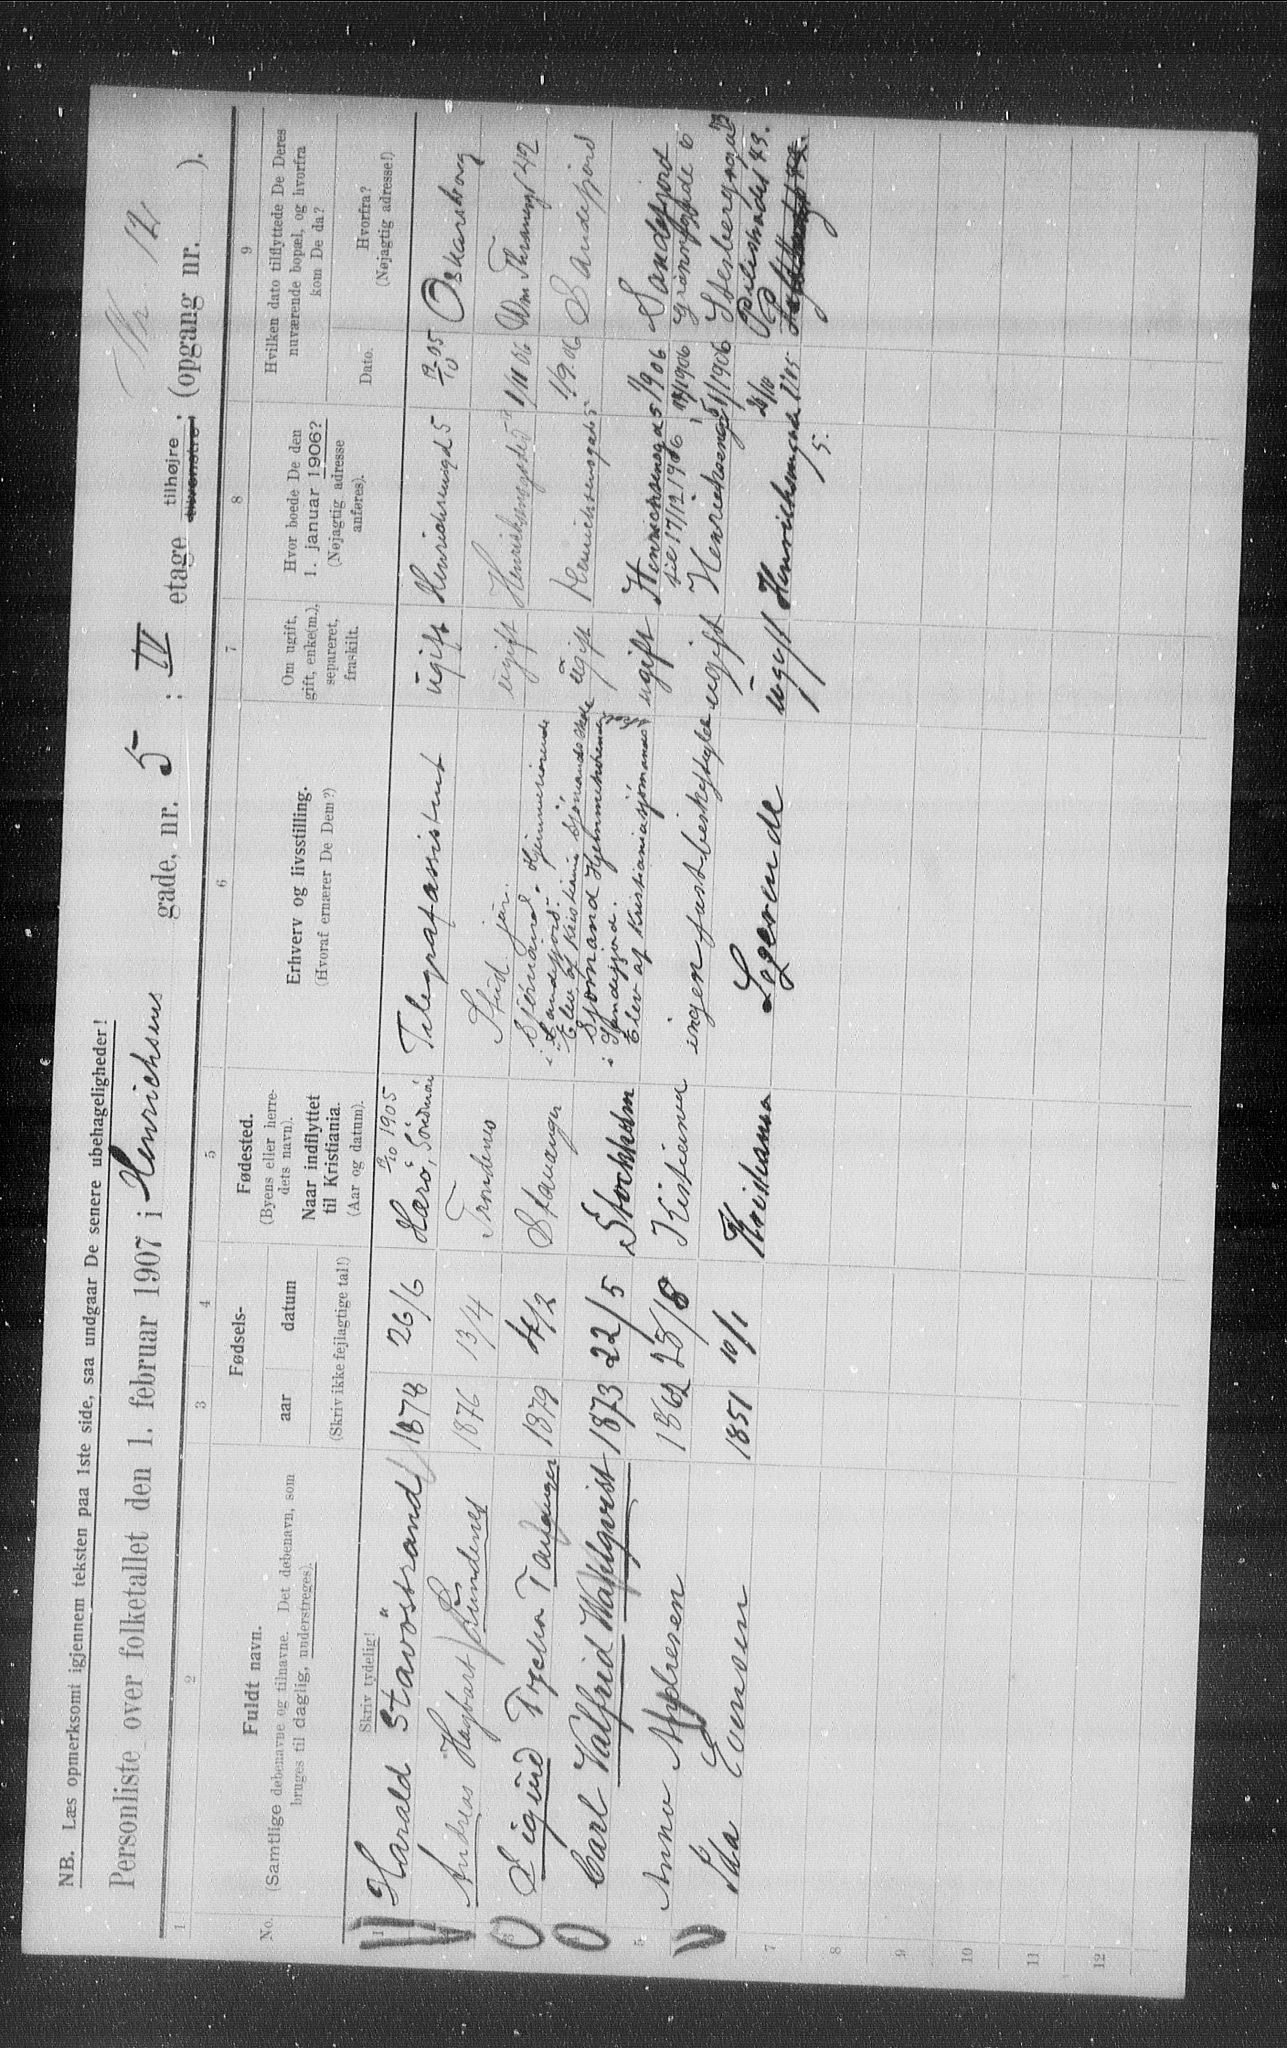 NB. Læs opmerksomt igjennem teksten paa 1ste side, saa undgaar De senere ubehageligheder!
Nr 12
Personliste over folketallet den 1. februar 1907 i Henrichsens gade, nr. 5 ; IV etage tilhøjre tilvenstre; (opgang nr. ).
1 2 3 4 5 6 7 8 9
No.
Fuldt navn.
(Samtlige døbenavne og tilnavne. Det døbenavn, som
bruges til daglig, understreges).
Skriv tydelig!
Fødsels-
aar datum
(Skriv ikke fejlagtige tal!)
Fødested.
(Byens eller herre-
dets navn).
Naar indflyttet
til Kristiania.
(Aar og datum).
Erhverv og livsstilling.
(Hvoraf ernærer De Dem?)
Om ugift,
gift, enke(m.),
separeret,
fraskilt.
Hvor boede De den
1. januar 1906?
(Nøjagtig adresse
anføres).
Hvilken dato tilflyttede De Deres
nuværende bopæl, og hvorfra
kom De da?
Dato.
Hvorfra?
(Nøjagtig adresse!)
1 Harald Stavöstrand 1878 26/6 Harö, Söndmör 1905 Telegrafassistent ugift Henrichsensgd 5 Oskarsborg
Andreas Hagbart 1876 13/4 Stud. ugift 1/11 06 42
3 Sigurd Tanganger 1879 4/2 Stavanger Sjömand. Hjemmehörende
i Sandefjord.
Elev af Kristiania Sjömandsskole ugift Henrichsensgade 5 1/9 06 Sandefjord
Carl Valfrid Wahlqvist 1873 22/5 Stockholm Sjömand Hjemmehörende
i Sandefjord.
Elev af Kristiania sjömands ugift Henrichsensgd 5 1/9 06 Sandefjord
5 Anna Andresen 1862 28/8 Kristiania ingen fast beskjeftigelse ugift 17/12 1906
Ida Evensen 1851 10/1 Kristiania Logerende ugift Henrichsensgade
5. Pilestrædet 49.
7
8
9
10
11
12